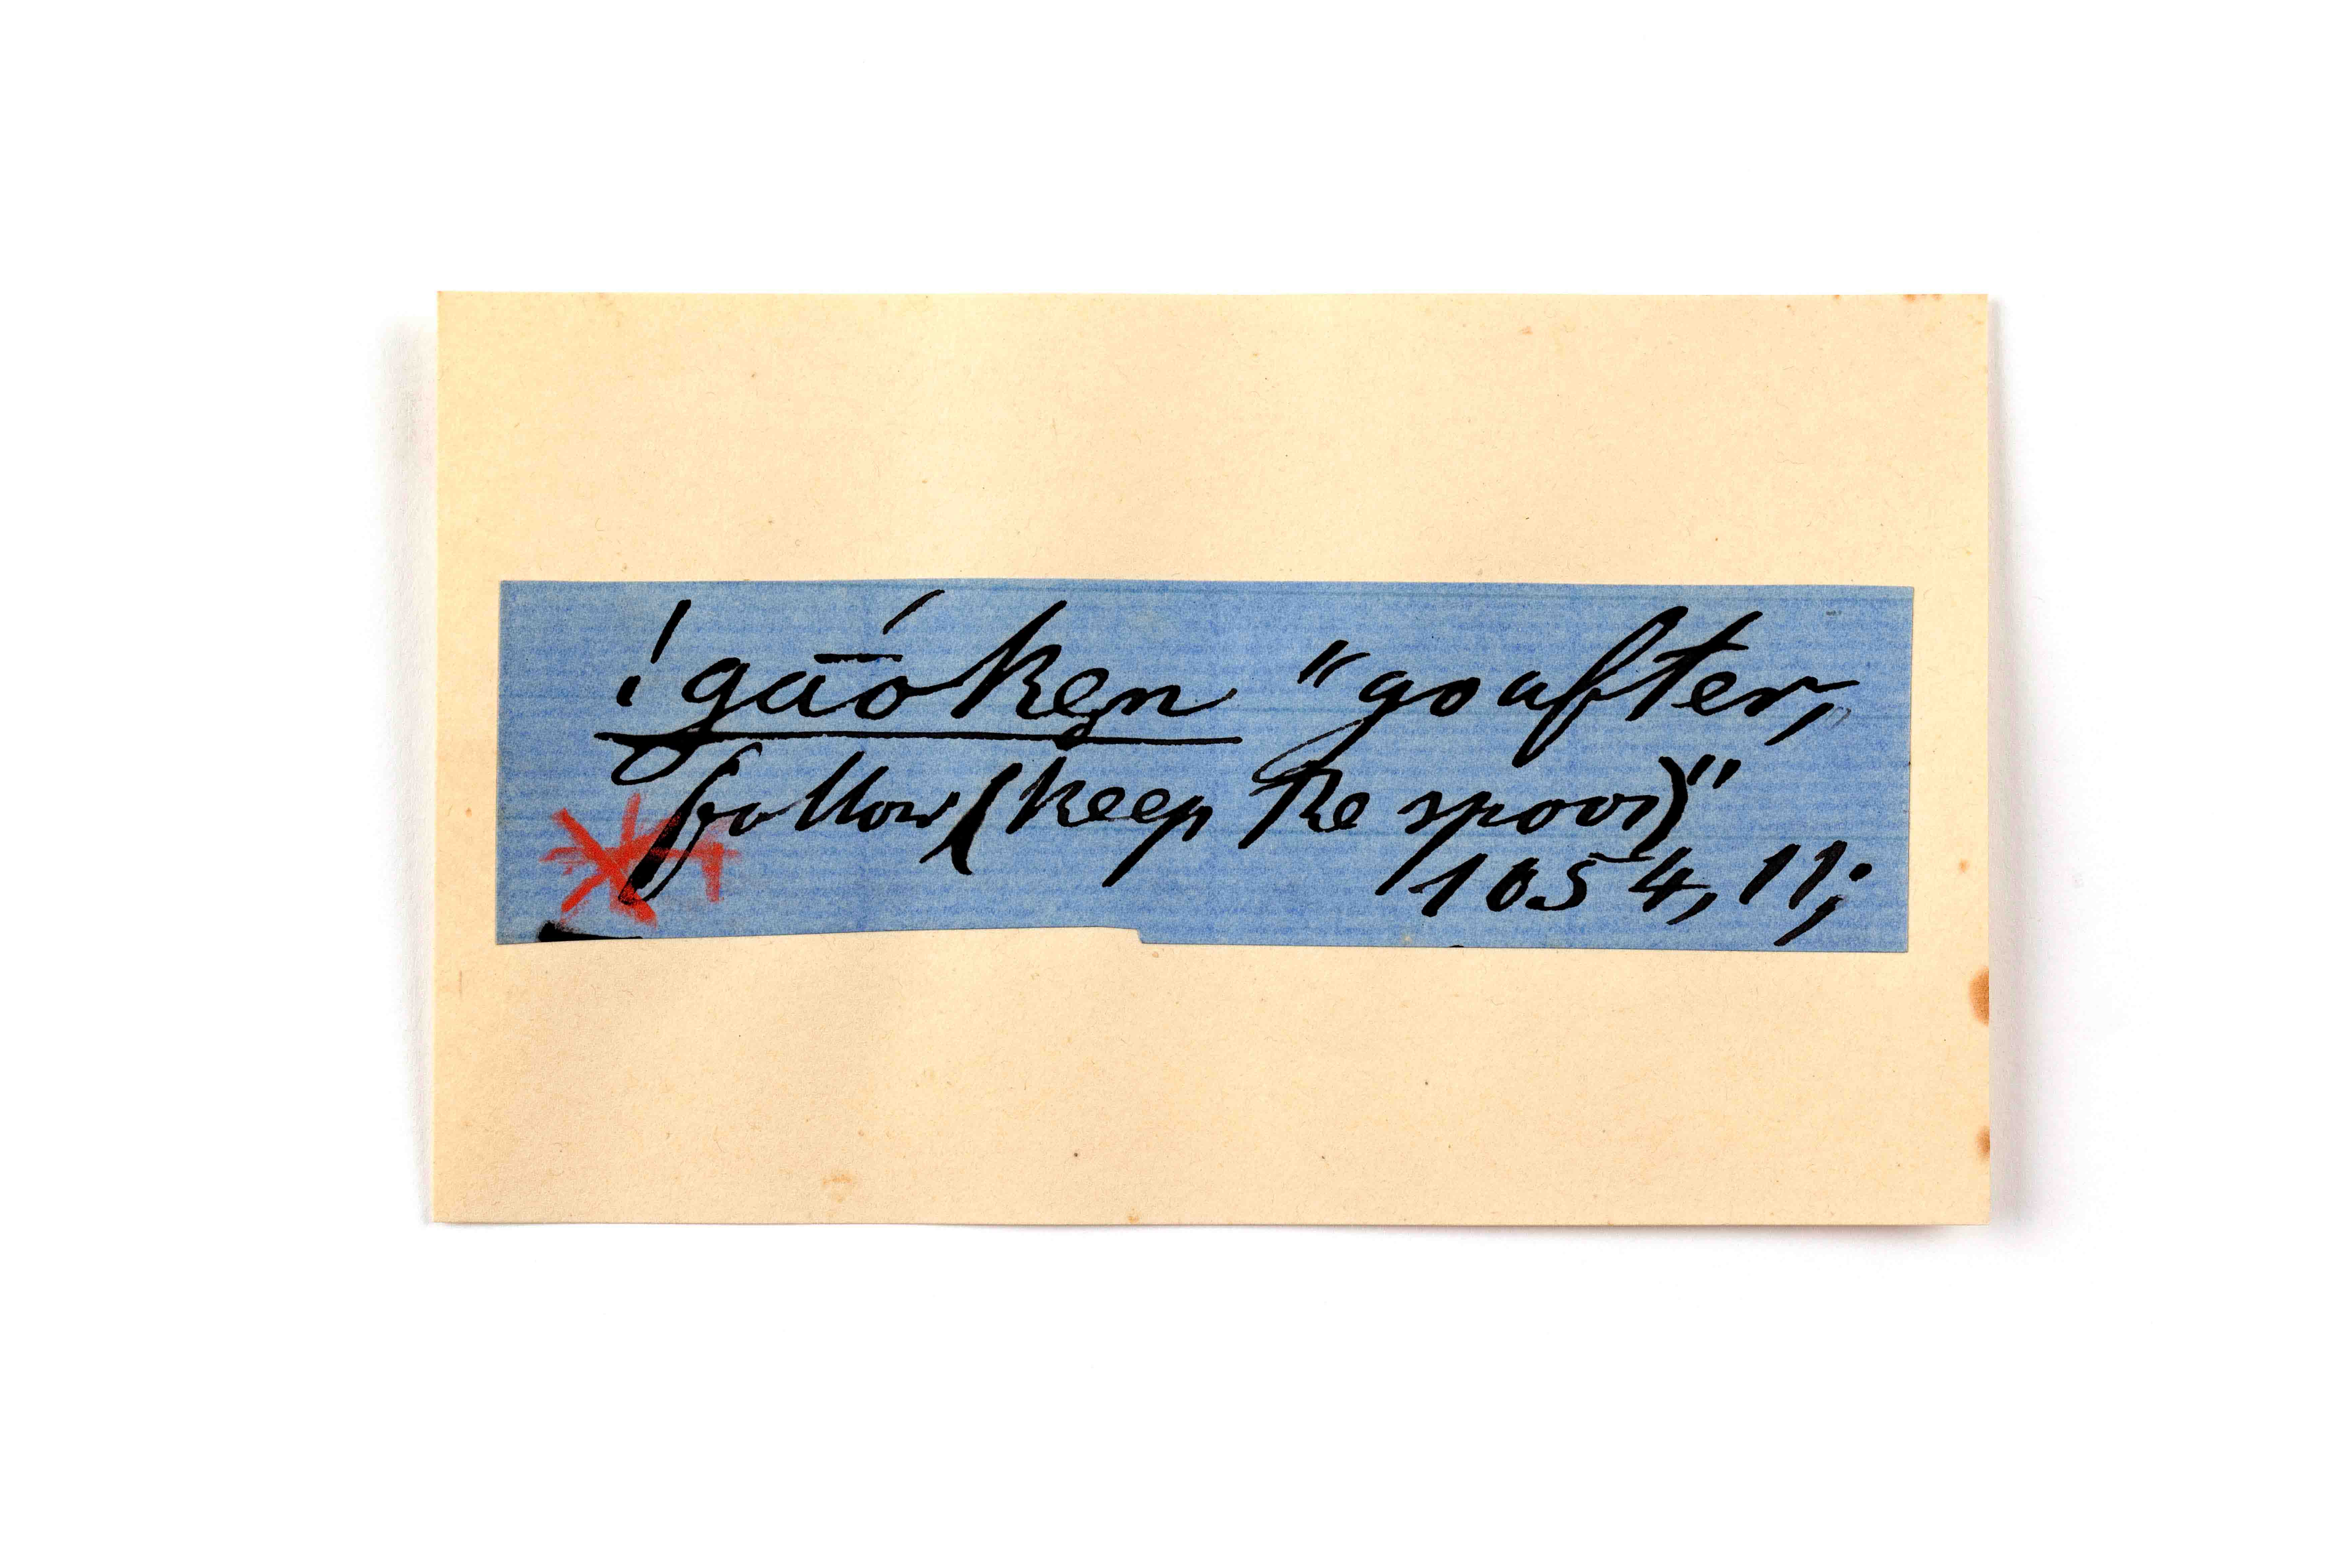 !gāóken "go after,
follow (keep the spoor)"
1054, 11;